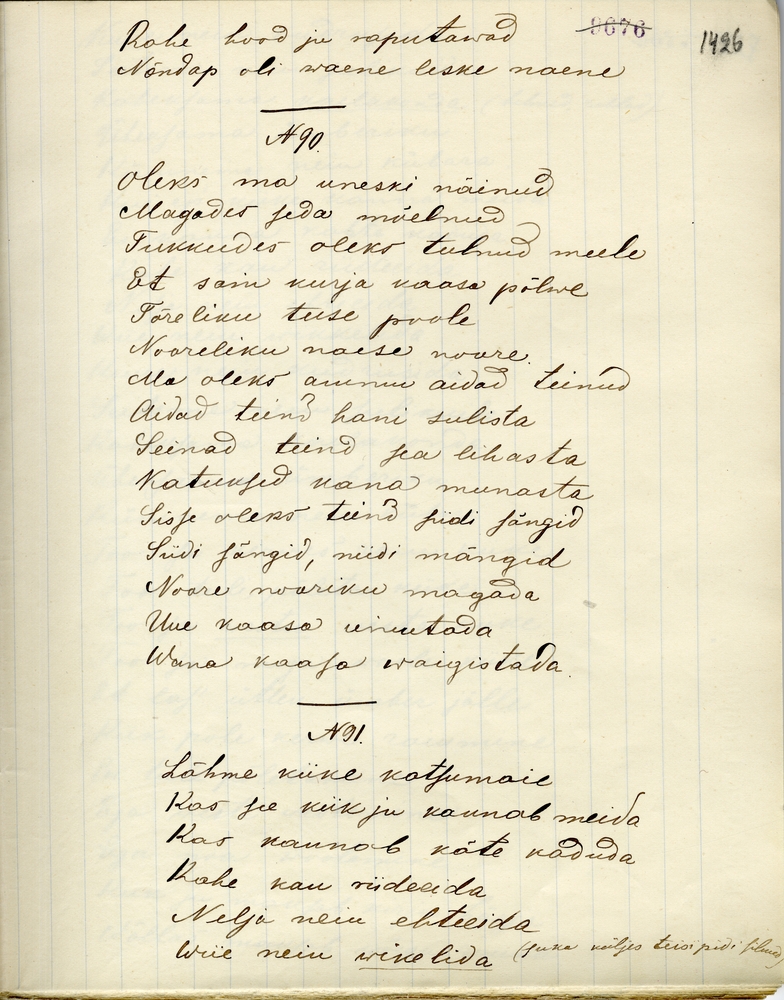 9676
1426
Kahe hood ju raputawad
Nõndap oli waene leske naene
N 90.
Oleks ma uneski näinud
Magades seda mõelnud
Tukkudes oleks tulnud meele
Et sain kurja kaasa põlwe
Tõreliku tuse poole
Nooreliku naese noore.
Ma oleks ammu aidad teinud
Aidad teind hani sulista
Seinad teind sea lihasta
Katuksed kana munasta
Sisse oleks teind siidi sängid
Siidi sängid, niidi mängid
Noore nooriku magada
Uue kaasa uinutada
Wana kaasa waigistada.
N 91.
Lähme kiike katsumaie
Kas see kiik ju kannab meida
Kas kannab käte kaduda
Kahe kau riideeida
Nelja neiu ehteeida
Wiie neiu wikelida (suka küljes teisi pidi